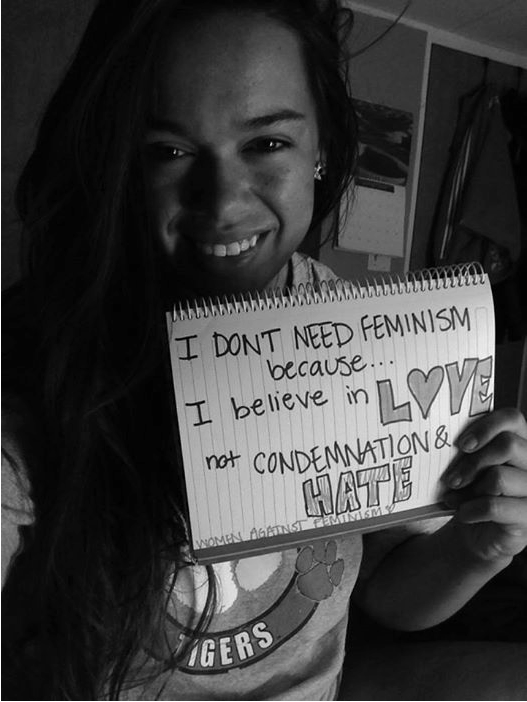 I DONT NEED FEMINISM
because...
I believe in LOVE
not CONDEMNATION &
HATE
WOMEN AGAINST FEMINISM
TIGERS